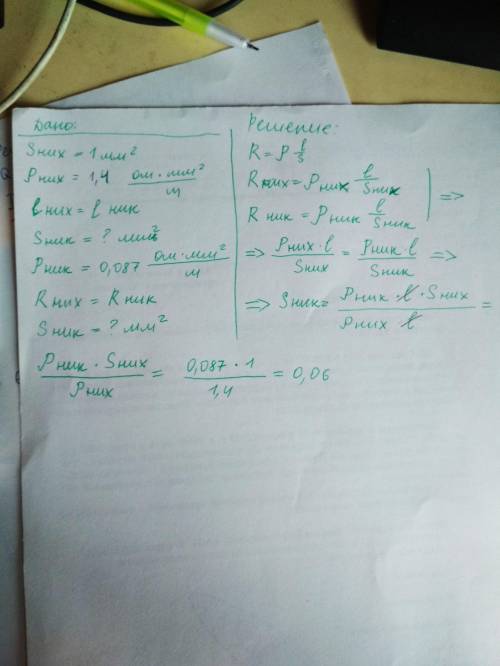 Дано:
Sних = 1 мм²
ρних = 1,4 Ом · мм² / м
lних = l ник
Sник = ? мм²
ρник = 0,087 Ом · мм² / м
Rних = Rник
Sник = ? мм²
Решение:
R = ρ l/S
Rних = ρних l/Sник
=>
Rник = ρник l/Sник
=> ρних · l / Sних = ρник · l / Sник =>
=> Sник = ρник · l · Sних / ρних l =
ρник · Sних / ρних = 0,087 · 1 / 1,4 = 0,06